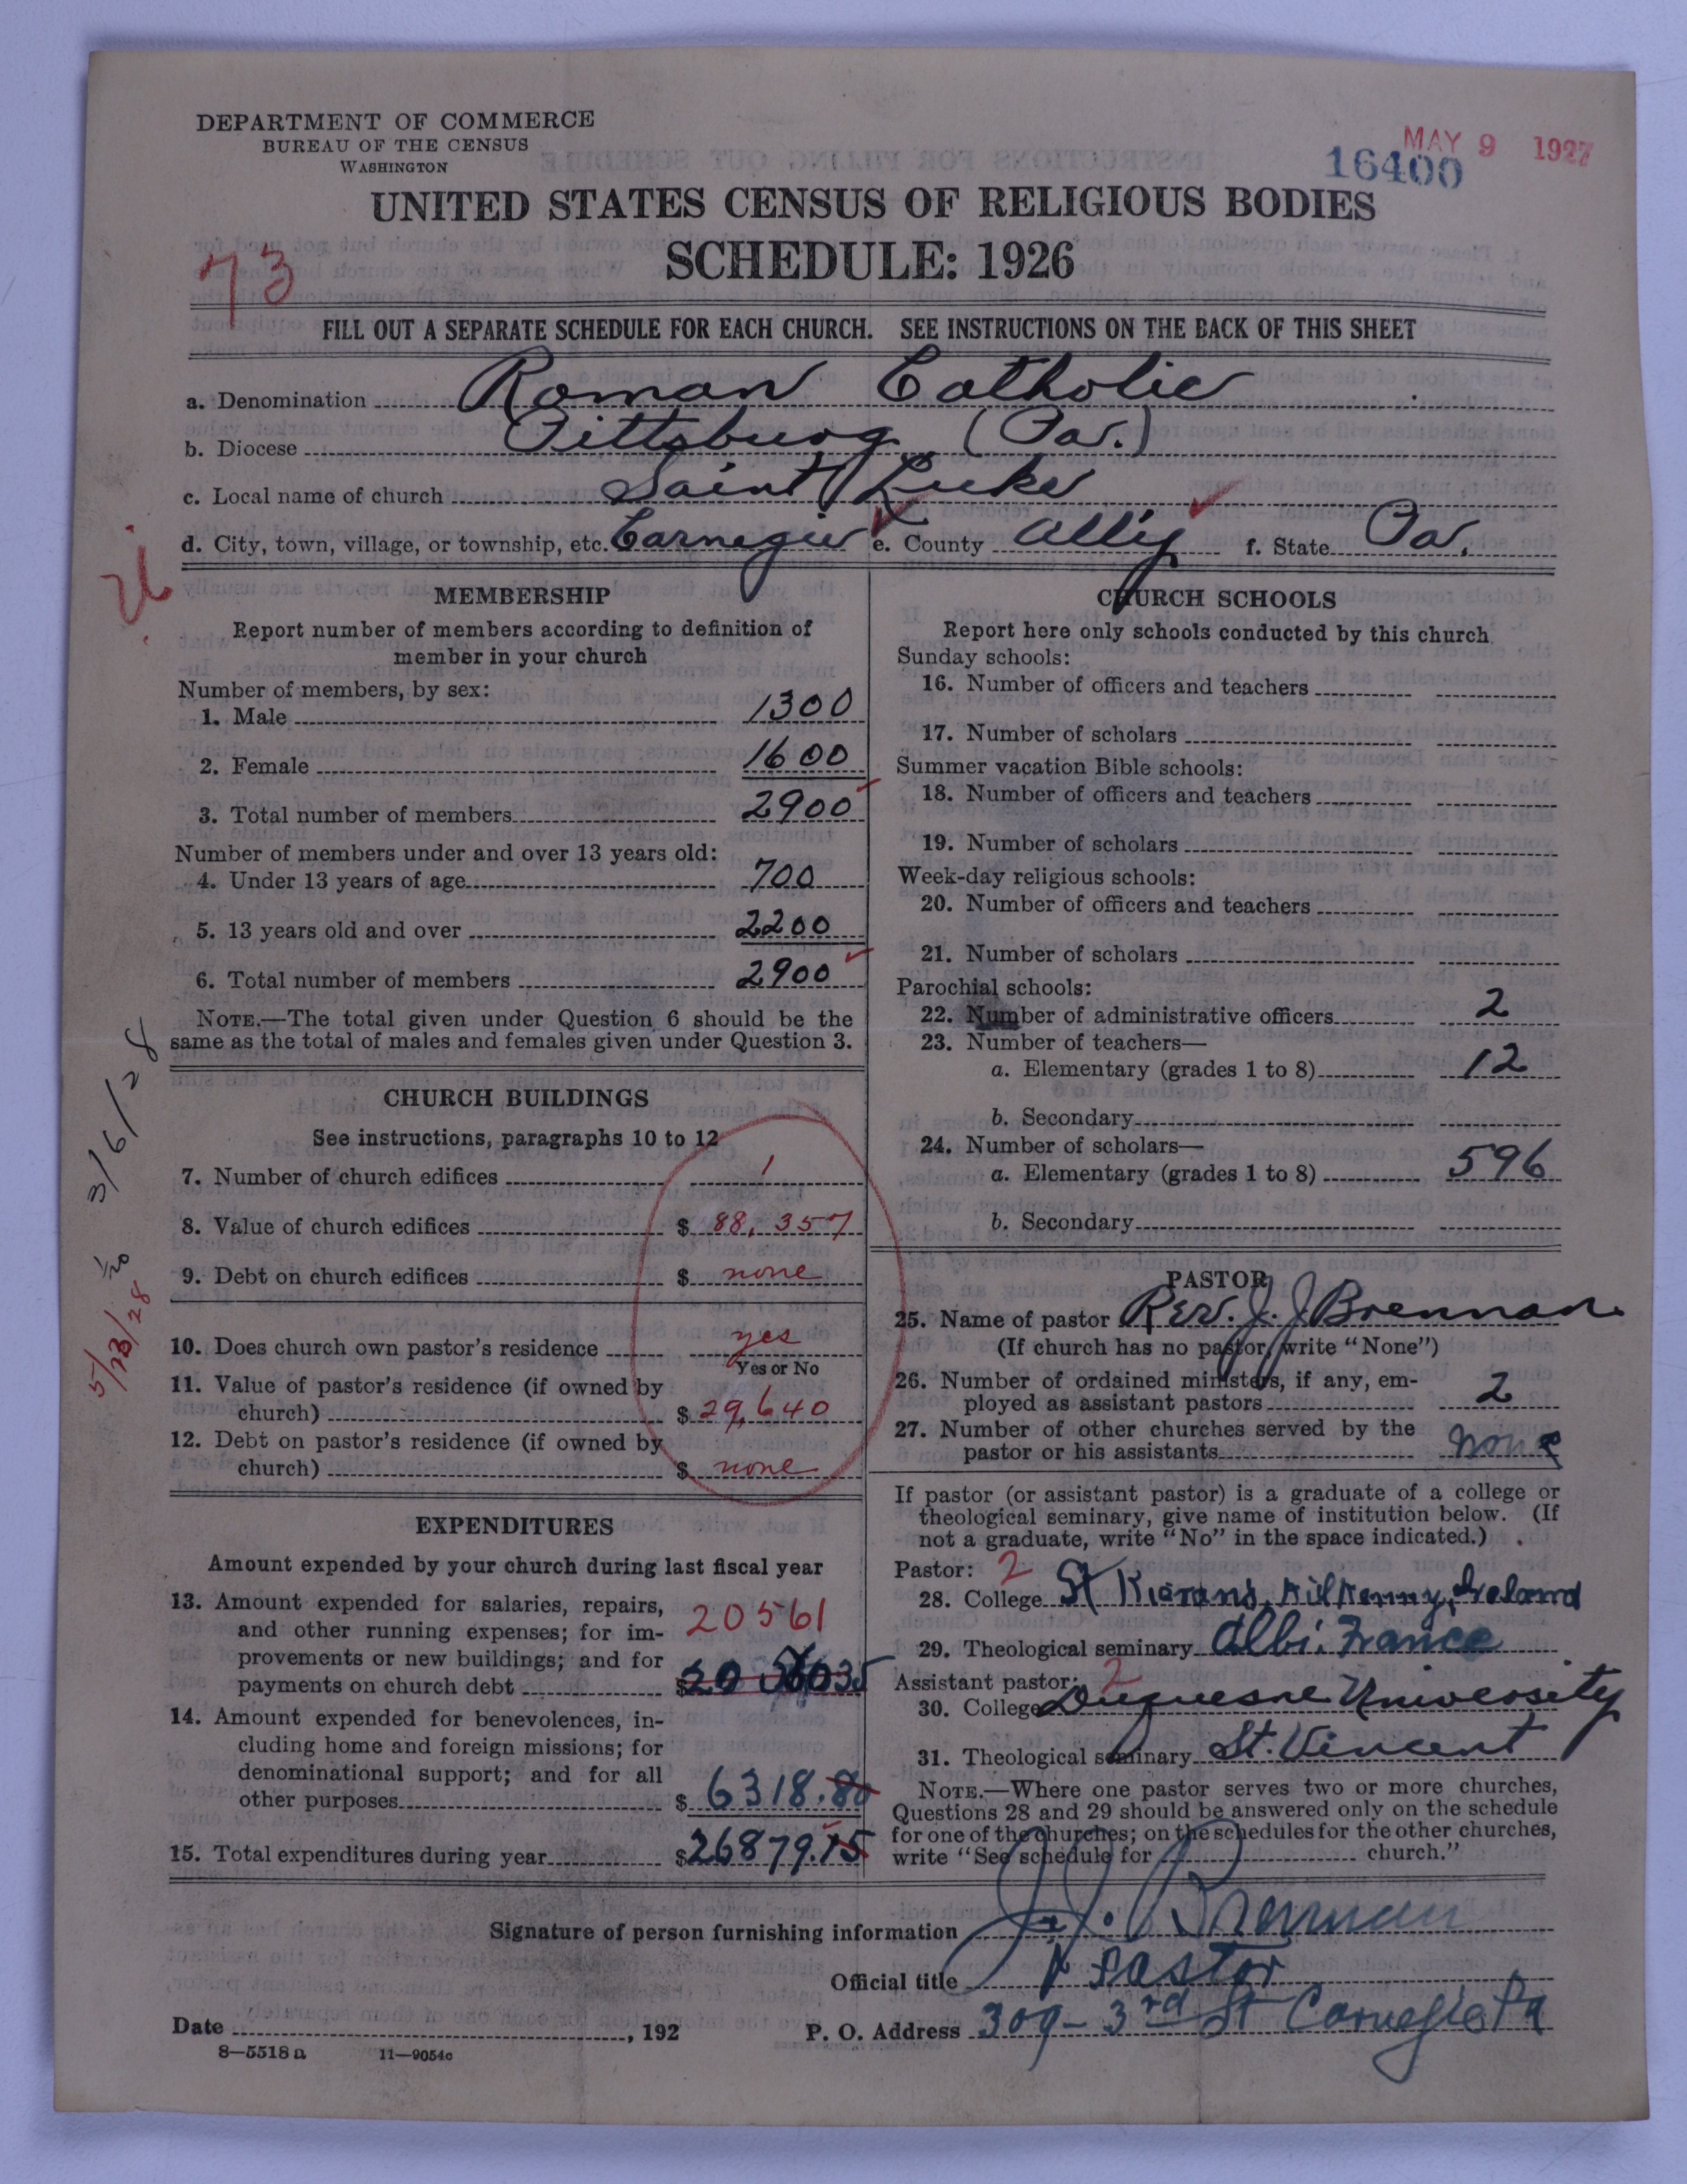 DEPARTMENT OF COMMERCE
BUREAU OF THE CENSUS
WASHINGTON
MAY 9 1927
16400
UNITED STATES CENSUS OF RELIGIOUS BODIES
SCHEDULE: 1926
73
FILL OUT A SEPARATE SCHEDULE FOR EACH CHURCH. SEE INSTRUCTIONS ON THE BACK OF THIS SHEET
a. Denomination Roman Catholic
b. Diocese Pittsburg (Pa.)
c. Local name of church Saint Luke
d. City, town, village, or township, etc. Carnegie e. County Alleg f. State Pa.
MEMBERSHIP
Report number of members according to definition of
member in your church
Number of members, by sex:
1. Male 1300
2. Female 1600
3. Total number of members 2900
Number of members under and over 13 years old:
4. Under 13 years of age 700
5. 13 years old and over 2200
6. Total number of members 2900
NOTE.—The total given under Question 6 should be the
same as the total of males and females given under Question 3.
3/6/28
CHURCH BUILDINGS
See instructions, paragraphs 10 to 12
7. Number of church edifices 1
8. Value of church edifices $ 88,357
9. Debt on church edifices $ none
5/23/28
10. Does church own pastor's residence yes
Yes or No
11. Value of pastor's residence (if owned by
church) $ 29,640
12. Debt on pastor's residence (if owned by
church) $ none
EXPENDITURES
Amount expended by your church during last fiscal year
13. Amount expended for salaries, repairs,
and other running expenses; for im-
provements or new buildings; and for
payments on church debt $ 20561
14. Amount expended for benevolences, in-
cluding home and foreign missions; for
denominational support; and for all
other purposes $ 6318.80
15. Total expenditures during year $26879.15
CHURCH SCHOOLS
Report here only schools conducted by this church
Sunday schools:
16. Number of officers and teachers
17. Number of scholars
Summer vacation Bible schools:
18. Number of officers and teachers
19. Number of scholars
Week-day religious schools:
20. Number of officers and teachers
21. Number of scholars
Parochial schools:
22. Number of administrative officers 2
23. Number of teachers—
a. Elementary (grades 1 to 8) 12
b. Secondary
24. Number of scholars—
a. Elementary (grades 1 to 8) 596
b. Secondary
PASTOR
25. Name of pastor Rev. J. J. Brennan
(If church has no pastor, write "None")
26. Number of ordained ministers, if any, em-
ployed as assistant pastors 2
27. Number of other churches served by the
pastor or his assistants none
If pastor (or assistant pastor) is a graduate of a college or
theological seminary, give name of institution below. (If
not a graduate, write "No" in the space indicated.)
Pastor: 2
28. College St Kierans, Kilkenny, Ireland
29. Theological seminary Albi. France
Assistant pastor: 2
30. College Duquesne University
31. Theological seminary St. Vincent
NOTE.—Where one pastor serves two or more churches,
Questions 28 and 29 should be answered only on the schedule
for one of the churches; on the schedules for the other churches,
write "See schedule for church."
Signature of person furnishing information J. J. Brennan
Official title Pastor
Date , 192
P. O. Address 309- 3rd St Carnegie Pa
8—5518 a 11—9054c